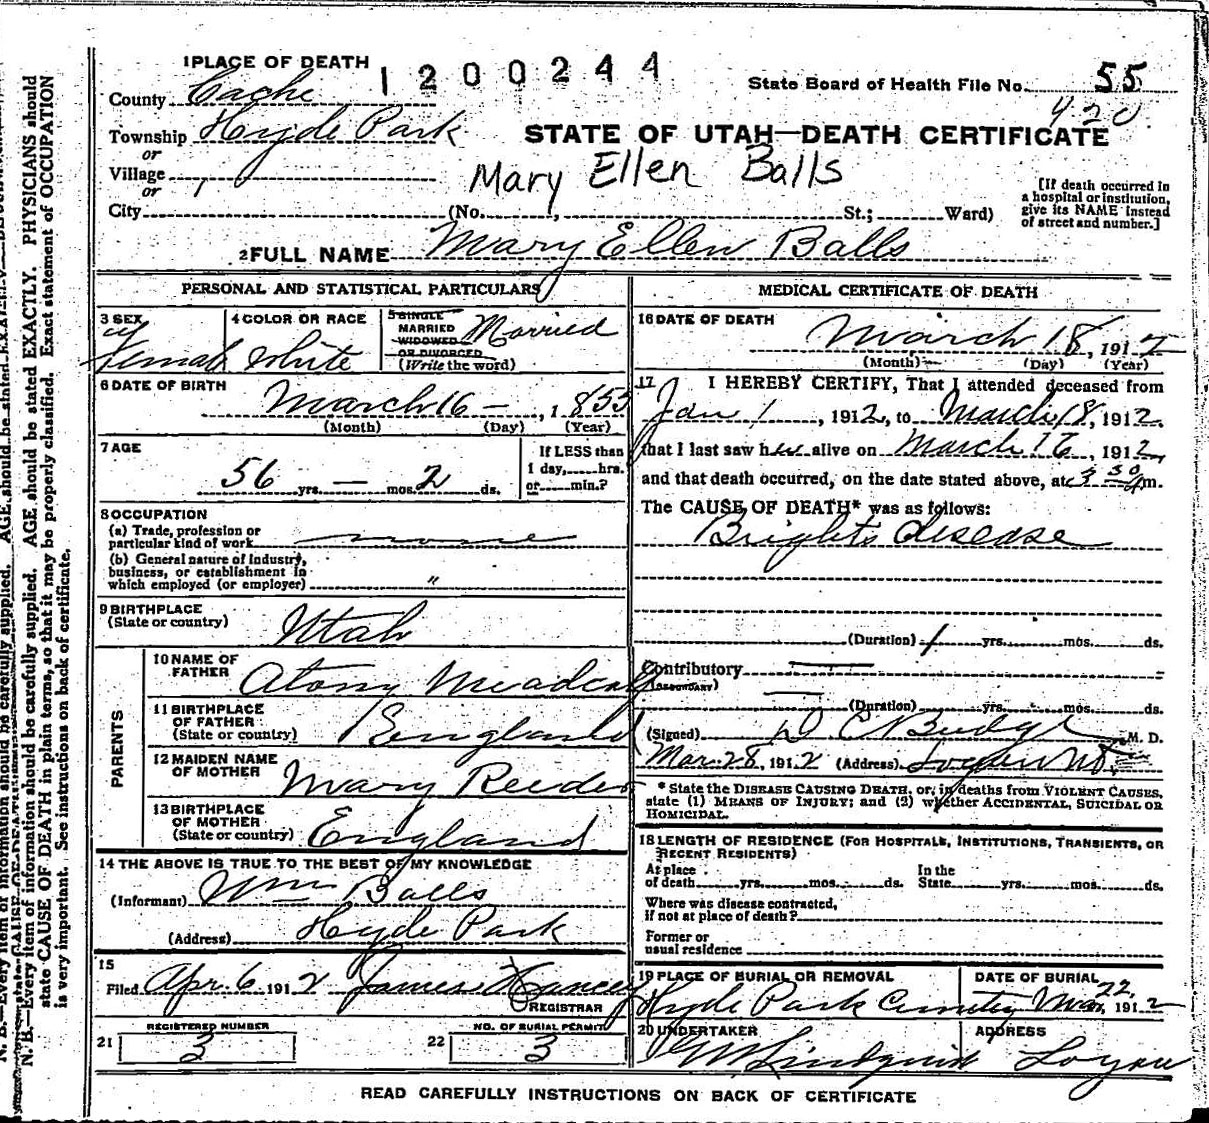 1 PLACE OF DEATH
1200244
State Board of Health File No. 55
County Cache
420
Township Hyde Park
STATE OF UTAH—DEATH CERTIFICATE
or
Village
Mary Ellen Balls
or
City (No. , St.; Ward)
[If death occurred in a hospital or institution, give its NAME instead of street and number.]
2 FULL NAME Mary Ellen Balls
PERSONAL AND STATISTICAL PARTICULARS
3 SEX
Female
4 COLOR OR RACE
White
5 SINGLE
MARRIED
WIDOWED
OR DIVORCED
(Write the word)
Married
6 DATE OF BIRTH
March 16 — , 1 855
(Month) (Day) (Year)
7 AGE
56 yrs. — mos. 2 ds.
If LESS than
1 day, hrs.
or min.?
8 OCCUPATION
(a) Trade, profession or
particular kind of work none
(b) General nature of industry,
business, or establishment in
which employed (or employer) "
9 BIRTHPLACE
(State or country) Utah
PARENTS
10 NAME OF
FATHER Atony Meadcalf
11 BIRTHPLACE
OF FATHER
(State or country) England
12 MAIDEN NAME
OF MOTHER Mary Reeder
13 BIRTHPLACE
OF MOTHER
(State or country) England
14 THE ABOVE IS TRUE TO THE BEST OF MY KNOWLEDGE
(Informant) Wm Balls
(Address) Hyde Park
15
Filed Apr. 6 191 2 James Hancey
REGISTRAR
REGISTERED NUMBER
21 3
NO. OF BURIAL PERMIT
22 3
MEDICAL CERTIFICATE OF DEATH
16 DATE OF DEATH
March 18, 191 2
(Month) (Day) (Year)
17 I HEREBY CERTIFY, That I attended deceased from
Jan 1, 1912, to March 18, 1912.
that I last saw her alive on March 16, 1912,
and that death occurred, on the date stated above, at 3 30 m.
The CAUSE OF DEATH* was as follows:
Brights disease
(Duration) 1 yrs. mos. ds.
Contributory
(SECONDARY)
(Duration) yrs. mos. ds.
(Signed) D C Budge M. D.
Mar. 28, 191 2 (Address) Logan Ut.
* State the DISEASE CAUSING DEATH, or, in deaths from VIOLENT CAUSES,
state (1) MEANS OF INJURY; and (2) whether ACCIDENTAL, SUICIDAL OR
HOMICIDAL.
18 LENGTH OF RESIDENCE (FOR HOSPITALS, INSTITUTIONS, TRANSIENTS, OR
RECENT RESIDENTS)
At place
of death yrs. mos. ds.
In the
State yrs. mos. ds.
Where was disease contracted,
if not at place of death?
Former or
usual residence
19 PLACE OF BURIAL OR REMOVAL
Hyde Park Cemetery
DATE OF BURIAL
Mar, 22, 191 2
20 UNDERTAKER
Lindquist
ADDRESS
Logan
READ CAREFULLY INSTRUCTIONS ON BACK OF CERTIFICATE
N. B.—Every item of information should be carefully supplied. AGE should be stated EXACTLY. PHYSICIANS should
state CAUSE OF DEATH in plain terms, so that it may be properly classified. Exact statement of OCCUPATION
is very important. See instructions on back of certificate.